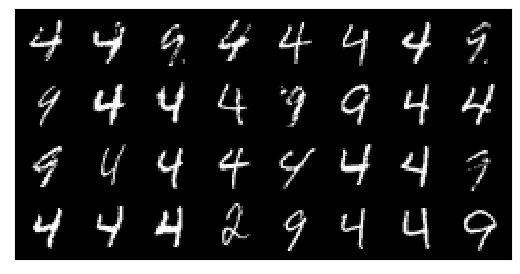 4 4 9 4 4 4 4 9
9 4 4 4 9 9 4 4
9 4 4 4 4 4 4 9
4 4 4 2 9 4 4 9